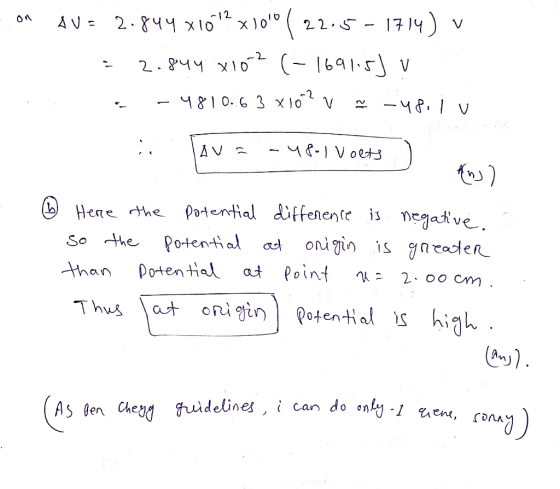 or ΔV = 2.844 x10^-12 x10^10 ( 22.5 - 1714) V
= 2.844 x10^-2 (- 1691.5) V
= - 4810.63 x10^-2 V ≃ -48.1 V
∴ ΔV = - 48.1 Voets
(Ans)
(b) Here the Potential difference is negative.
So the Potential at origin is greater
than Potential at Point x = 2.00 cm.
Thus at origin Potential is high.
(Ans).
(As Per Chegg guidelines, i can do only -1 sorry)